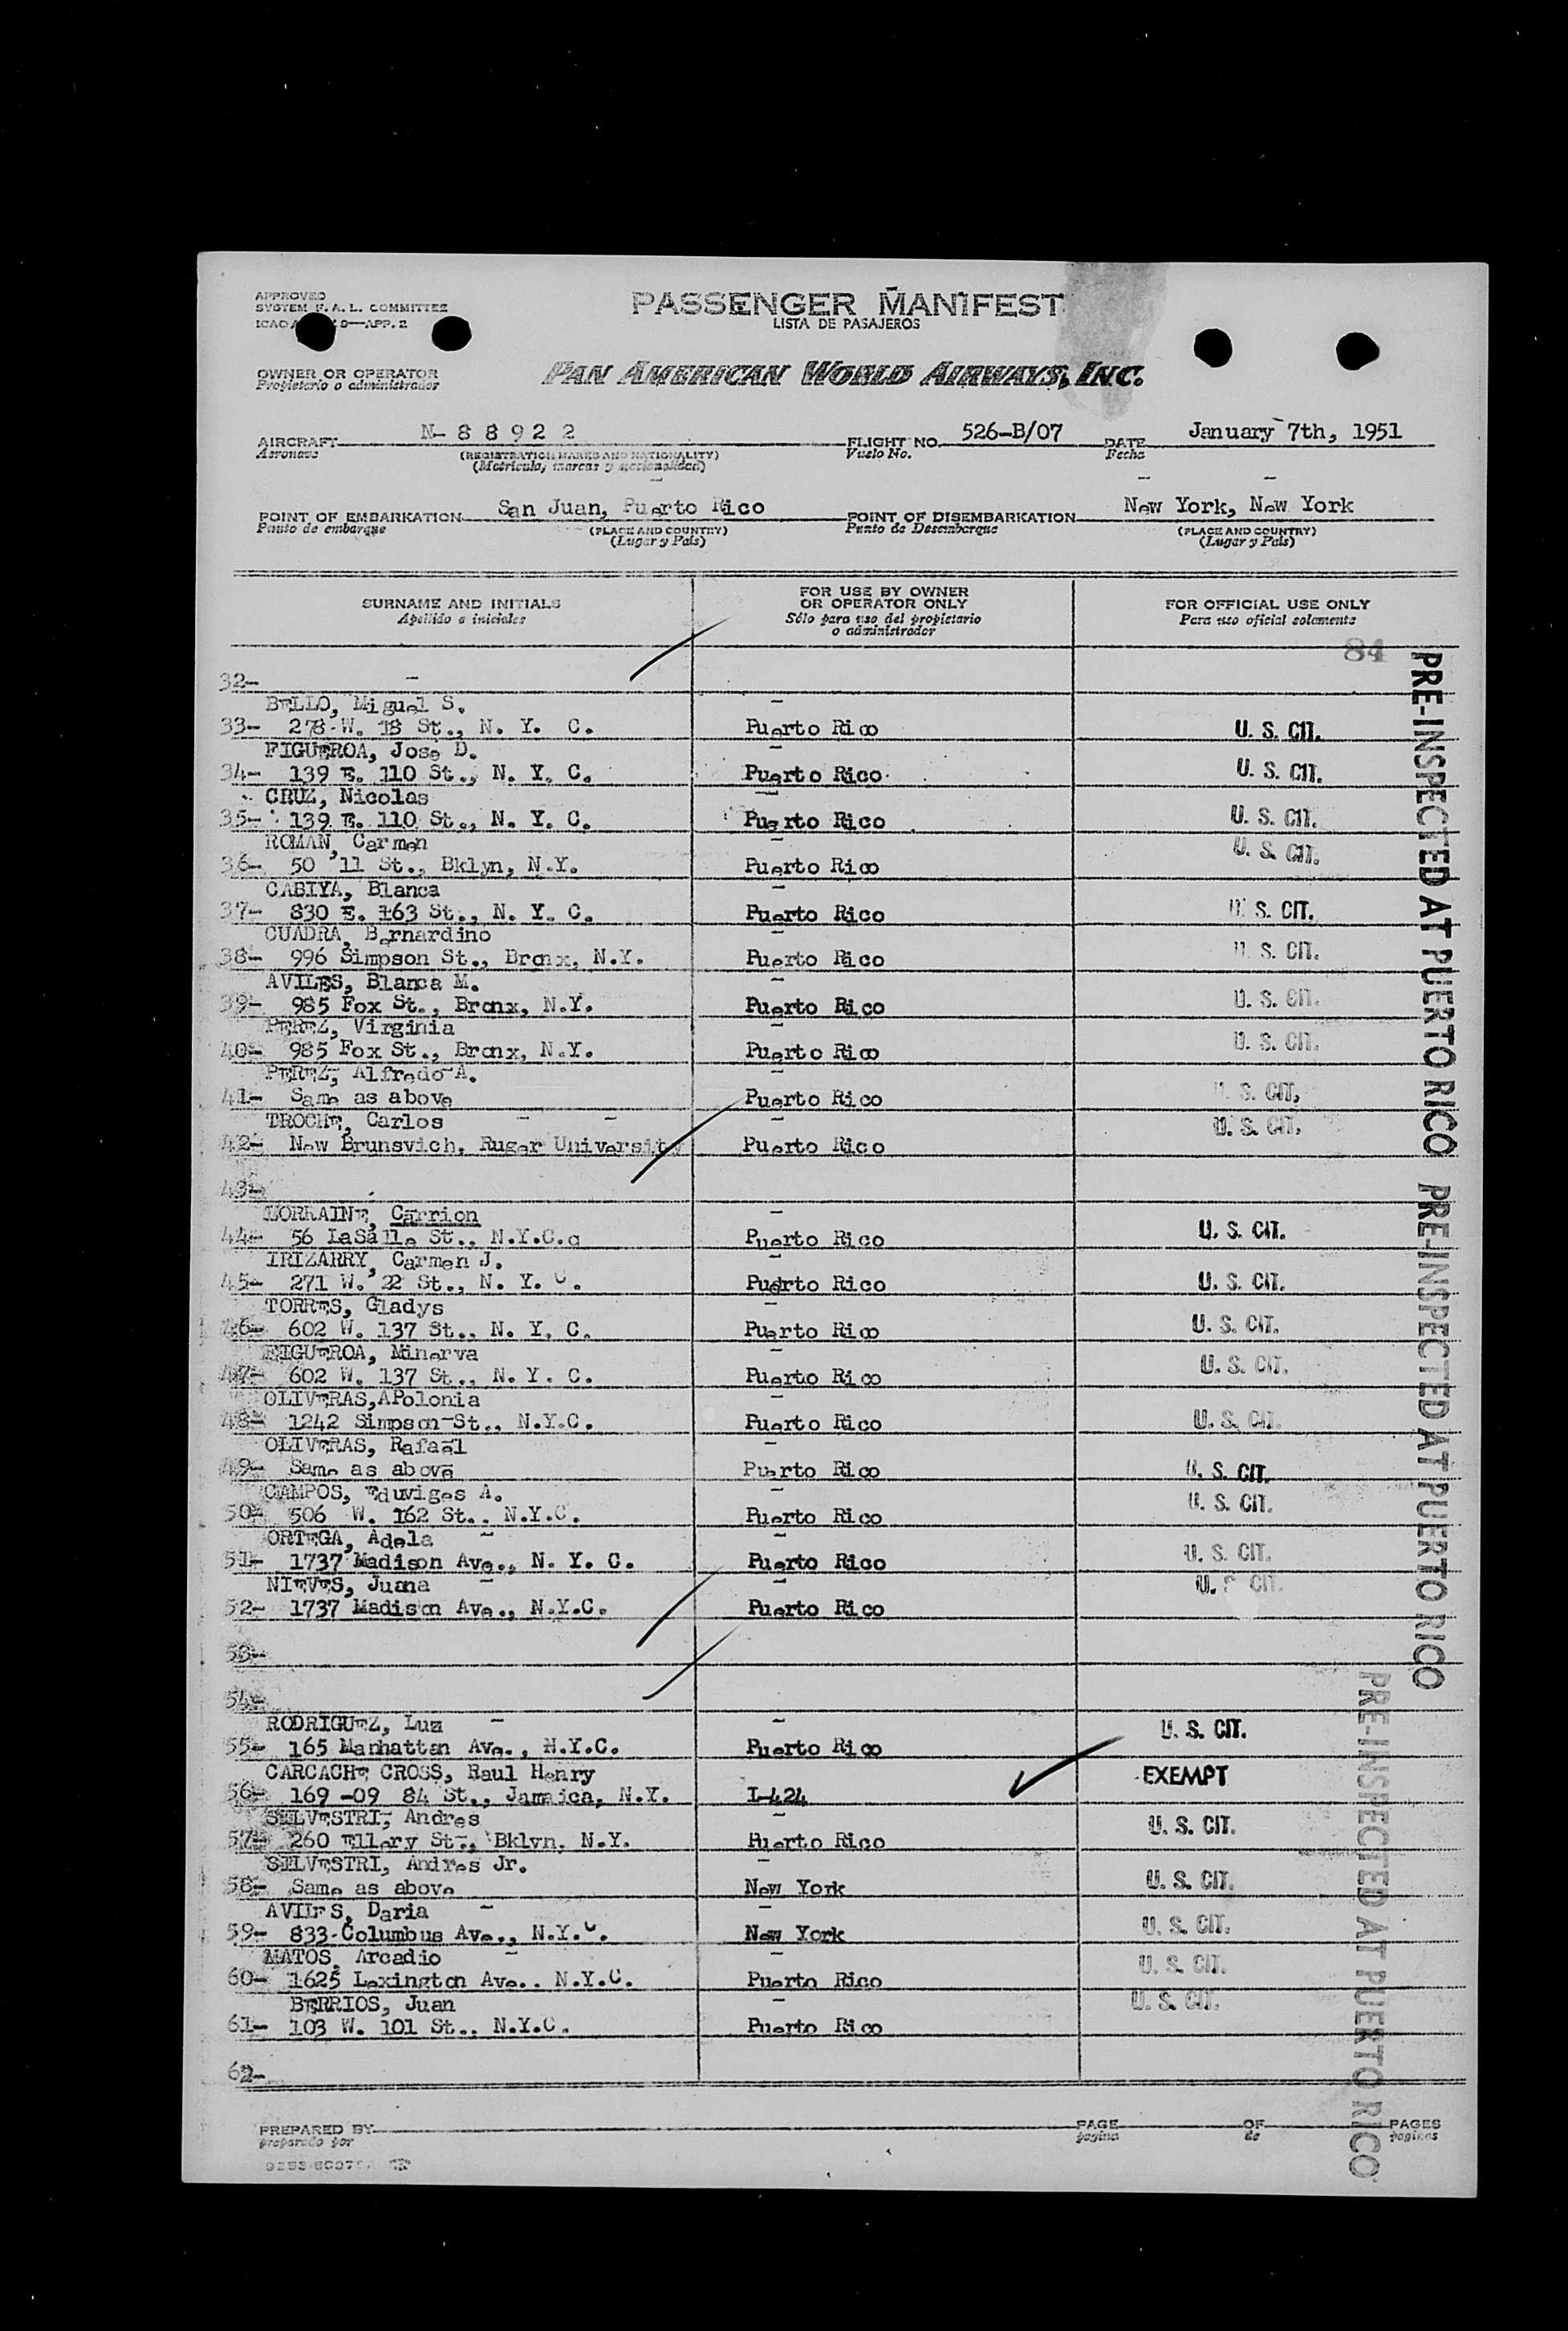 APPROVED
SYSTEM F. A. L. COMMITTEE
ICAO 9—APP. 2
PASSENGER MANIFEST
LISTA DE PASAJEROS
OWNER OR OPERATOR
Propietario o administrador
PAN AMERICAN WORLD AIRWAYS, INC.
AIRCRAFT N- 8 8 9 2 2 FLIGHT NO. 526-B/07 DATE January 7th, 1951
Aeronave (REGISTRATION MARKS AND NATIONALITY) Vuelo No. Fecha
(Matricula, marcas y nacionalidad)
POINT OF EMBARKATION San Juan, Puerto Rico POINT OF DISEMBARKATION New York, New York
Punto de embarque (PLACE AND COUNTRY) Punto de Desembarque (PLACE AND COUNTRY)
(Lugar y País) (Lugar y País)
SURNAME AND INITIALS
Apellido e iniciales
FOR USE BY OWNER
OR OPERATOR ONLY
Sólo para uso del propietario
o administrador
FOR OFFICIAL USE ONLY
Para uso oficial solamente
84
32- -
BELLO, Miguel S. -
33- 278 W. 18 St., N. Y. C. Puerto Rico U. S. CIT.
FIGUEROA, Jose D. -
34- 139 E. 110 St., N. Y. C. Puerto Rico U. S. CIT.
CRUZ, Nicolas -
35- 139 E. 110 St., N. Y. C. Puerto Rico U. S. CIT.
ROMAN, Carmen -
36- 50 11 St., Bklyn, N.Y. Puerto Rico U. S. CIT.
CABIYA, Blanca -
37- 830 E. 163 St., N. Y. C. Puerto Rico U. S. CIT.
CUADRA, Bernardino -
38- 996 Simpson St., Bronx, N.Y. Puerto Rico U. S. CIT.
AVILES, Blanca M. -
39- 985 Fox St., Bronx, N.Y. Puerto Rico U. S. CIT.
PEREZ, Virginia -
40- 985 Fox St., Bronx, N.Y. Puerto Rico U. S. CIT.
PEREZ, Alfredo A. -
41- Same as above Puerto Rico U. S. CIT.
TROCHE, Carlos - - -
42- New Brunsvich, Ruger University Puerto Rico U. S. CIT.
43-
LORRAINE, Carrion -
44- 56 LaSalle St., N.Y.C.q Puerto Rico U. S. CIT.
IRIZARRY, Carmen J. -
45- 271 W. 22 St., N. Y. C. Puerto Rico U. S. CIT.
TORRES, Gladys -
46- 602 W. 137 St., N. Y. C. Puerto Rico U. S. CIT.
FIGUEROA, Minerva -
47- 602 W. 137 St., N. Y. C. Puerto Rico U. S. CIT.
OLIVERAS,APolonia -
48- 1242 Simpson St., N.Y.C. Puerto Rico U. S. CIT.
OLIVERAS, Rafael -
49- Same as above Puerto Rico U. S. CIT.
CAMPOS, Eduviges A. -
50- 506 W. 162 St., N.Y.C. Puerto Rico U. S. CIT.
ORTEGA, Adela - -
51- 1737 Madison Ave., N. Y. C. Puerto Rico U. S. CIT.
NIEVES, Juana - -
52- 1737 Madison Ave., N.Y.C. Puerto Rico U. S. CIT.
53-
54-
RODRIGUEZ, Luz - -
55- 165 Manhattan Ave., N.Y.C. Puerto Rico U. S. CIT.
CARCACHE CROSS, Raul Henry
56- 169 -09 84 St., Jamaica, N.Y. I-424 EXEMPT
SELVESTRI, Andres -
57- 260 Ellery St., Bklyn. N.Y. Puerto Rico U. S. CIT.
SELVESTRI, Andres Jr. -
58- Same as above New York U. S. CIT.
AVILES, Daria - -
59- 833 Columbus Ave., N.Y.C. New York U. S. CIT.
MATOS, Arcadio - -
60- 1625 Lexington Ave., N.Y.C. Puerto Rico U. S. CIT.
BERRIOS, Juan -
61- 103 W. 101 St., N.Y.C. Puerto Rico U. S. CIT.
62-
PRE-INSPECTED AT PUERTO RICO
PRE-INSPECTED AT PUERTO RICO
PRE-INSPECTED AT PUERTO RICO
PREPARED BY PAGE OF PAGES
preparado por pagina de paginas